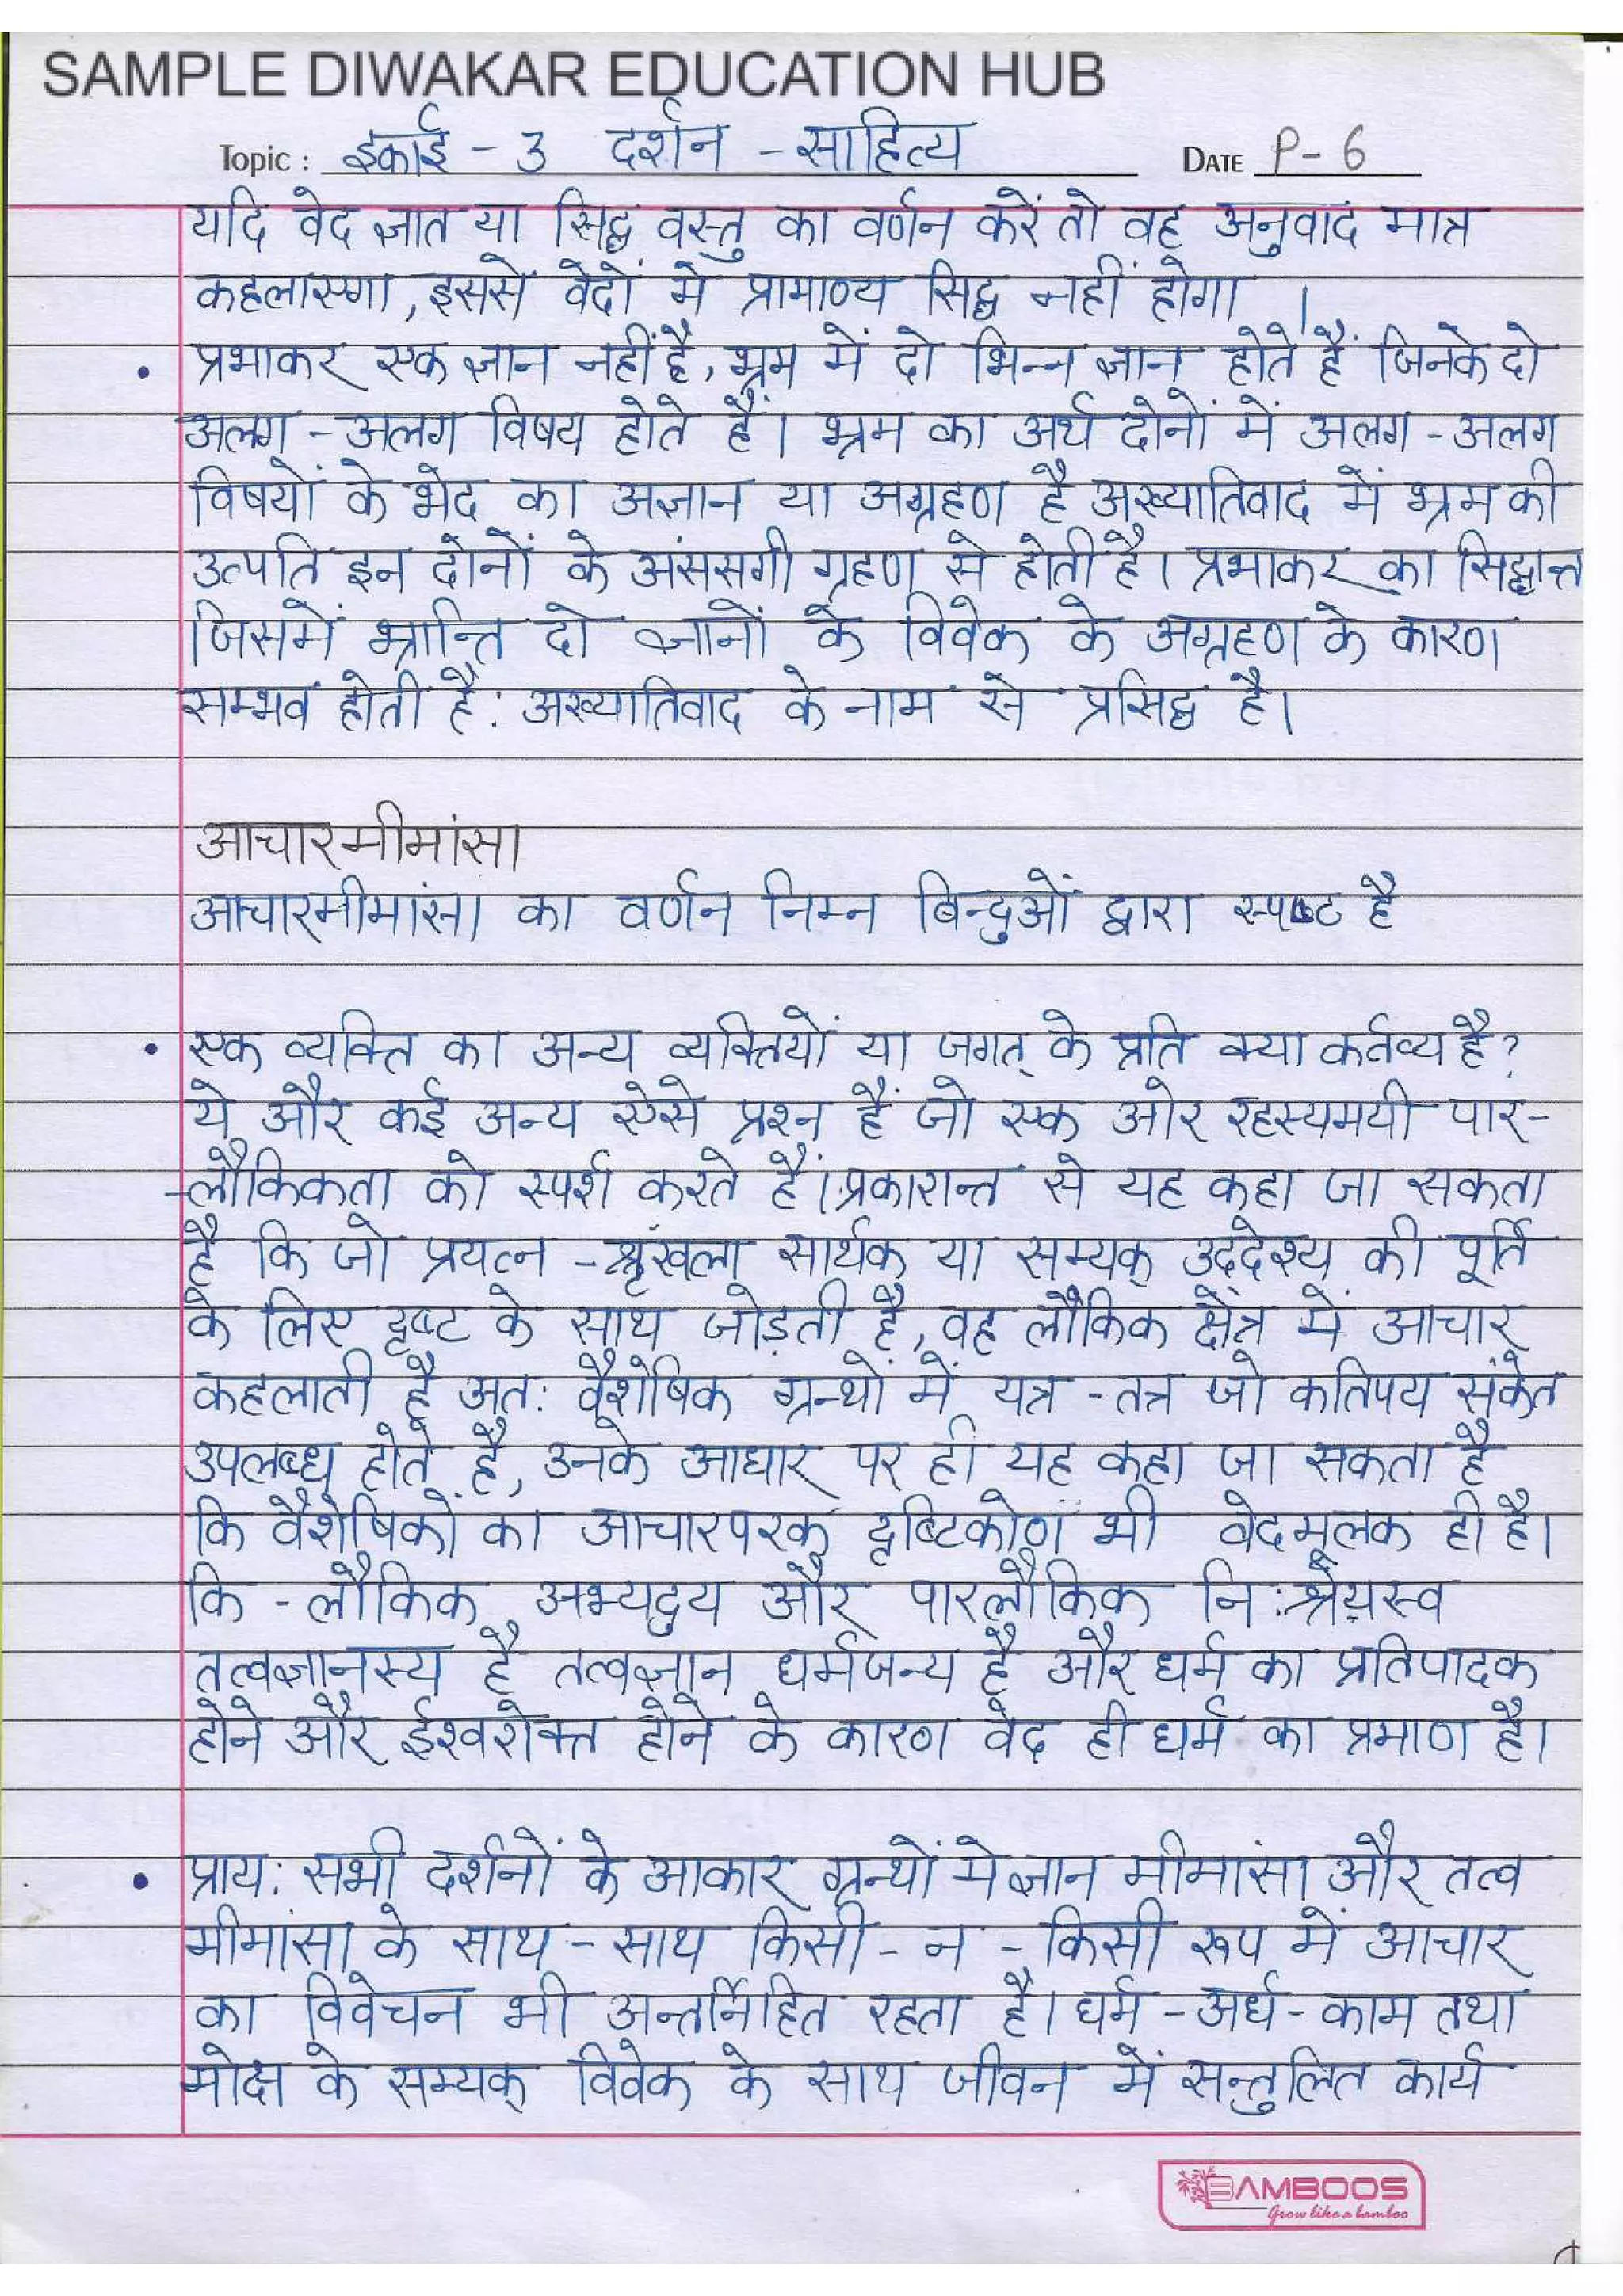 SAMPLE DIWAKAR EDUCATION HUB
Topic : इकाई - 3 दर्शन - साहित्य DATE P - 6
यदि वेद ज्ञात या सिद्ध वस्तु का वर्णन करें तो वह अनुवाद मात्र
कहलाएगा, इससे वेदों मे प्रामाण्य सिद्ध नहीं होगा ।
• प्रभाकर एक ज्ञान नहीं है, भ्रम में दो भिन्न ज्ञान होते हैं जिनके दो
अलग - अलग विषय होते हैं। भ्रम का अर्थ दोनों में अलग - अलग
विषयों के भेद का अज्ञान या अग्रहण है अख्यातिवाद में भ्रम की
उत्पति इन दोनों के अंससगी ग्रहण से होती है। प्रभाकर का सिद्धान्त
जिसमें भ्रान्ति दो ज्ञानों के विवेक के अग्रहण के कारण
सम्भव होती है: अख्यातिवाद के नाम से प्रसिद्ध है।
आचारमीमांसा
आचारमीमांसा का वर्णन निम्न बिन्दुओं द्वारा स्पष्ट है
• एक व्यक्ति का अन्य व्यक्तियों या जगत् के प्रति क्या कर्तव्य है?
ये और कई अन्य ऐसे प्रश्न हैं जो एक ओर रहस्यमयी पार-
-लौकिकता को स्पर्श करते हैं। प्रकारान्त से यह कहा जा सकता
है कि जो प्रयत्न - श्रृंखला सार्थक या सम्यक् उद्देश्य की पूर्ति
के लिए दृष्ट के साथ जोड़ती है, वह लौकिक क्षेत्र में आचार
कहलाती है अत: वैशेषिक ग्रन्थों में यत्र - तत्र जो कतिपय संकेत
उपलब्ध होते है, उनके आधार पर ही यह कहा जा सकता है
कि वैशेषिकों का आचारपरक दृष्टिकोण भी वेदमूलक ही है।
कि - लौकिक अभ्यदुय और पारलौकिक नि:श्रेयस्व
तत्वज्ञानस्य है तत्वज्ञान धर्मजन्य है और धर्म का प्रतिपादक
होने और ईश्वरोक्त होने के कारण वेद ही धर्म का प्रमाण है।
• प्राय: सभी दर्शनों के आकार ग्रन्थों मे ज्ञान मीमांसा और तत्व
मीमांसा के साथ - साथ किसी - न - किसी रूप में आचार
का विवेचन भी अन्तर्निहित रहता है। धर्म - अर्ध - काम तथा
मोक्ष के सम्यक् विवेक के साथ जीवन में सन्तुलित कार्य
BAMBOOS
Grow like a bamboo